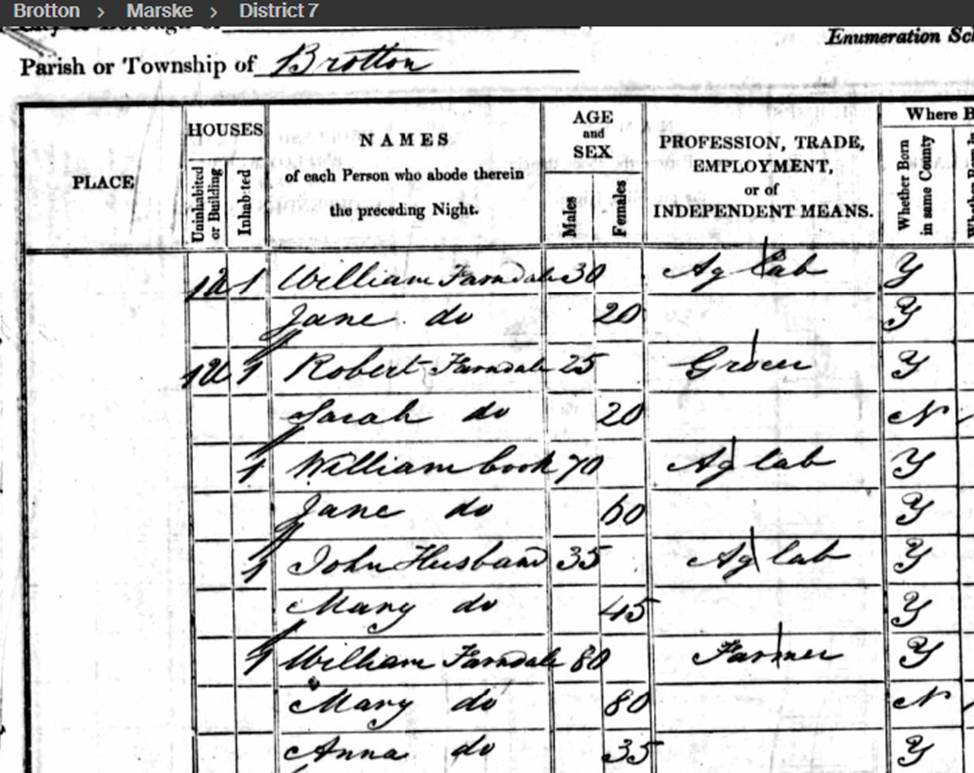 Brotton > Marske > District 7
City or Borough of
Enumeration Sch
Parish or Township of Brotton
PLACE
HOUSES
Uninhabited or Building
Inhabited
NAMES
of each Person who abode therein
the preceding Night.
AGE
and
SEX
Males
Females
PROFESSION, TRADE,
EMPLOYMENT,
or of
INDEPENDENT MEANS.
Where B
Whether Born
in same County
1U 1 William Farndale 30 Ag Lab Y
Jane do 20 Y
1U 1 Robert Farndale 25 Grocer Y
Sarah do 20 N
1 William Cook 70 Ag lab Y
Jane do 60 Y
1 John Husband 35 Ag lab Y
Mary do 45 Y
1 William Farndale 80 Farmer Y
Mary do 80 N
Anna do 35 Y